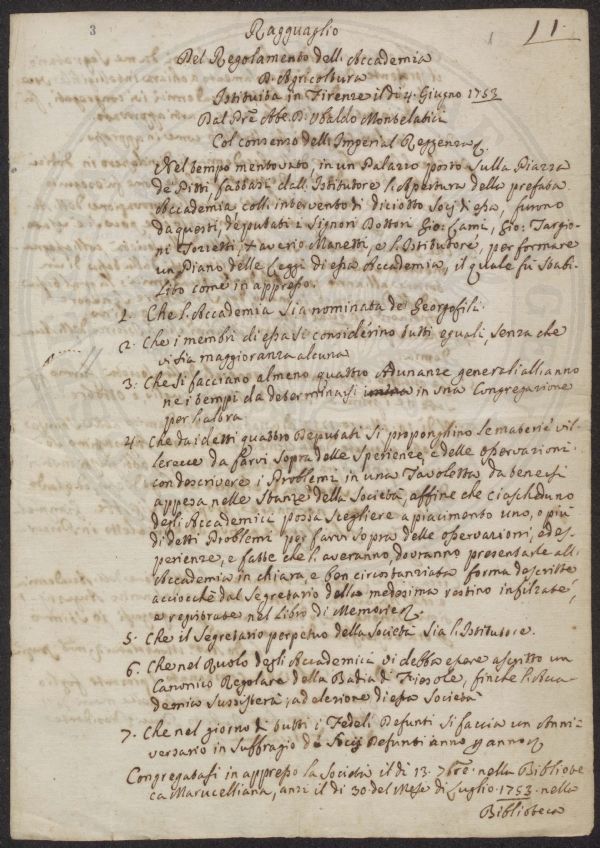 3
11.
Ragguaglio
Del Regolamento dell'Accademia
D'Agricoltura
Istituita in Firenze il dì 4. Giugno 1753
Dal Pre Abe D. Ubaldo Montelatici
Col consenso dell'Imperial Reggenza
Nel tempo mentovato, in un Palazzo posto sulla Piazza
de Pitti fattasi dall'Istitutore l'Apertura della prefata
Accademia coll'intervento di diciotto Socj di essa, furono
da questi, deputati i Signori Dottori Gio: Lami, Gio: Targio-
ni Tozzetti, Saverio Manetti, e l'Istitutore, per formare
un Piano delle Leggi di essa Accademia, il quale fù stabi-
lito come in appresso.
1. Che l'Accademia sia nominata de Georgofili.
2. Che i membri di essa si considerino tutti eguali, senza che
vi sia maggioranza alcuna
3. Che si facciano almeno quattro Adunanze generali all'anno
ne i tempi da determinarsi in una Congregazione
per l'altra
4. Che da i detti quattro Deputati si proponghino le materie vil-
lerecce da farvi sopra delle sperienze, e delle osservazioni
con descrivere i Problemi in una Tavoletta da tenersi
appesa nelle stanze della Società, affine che ciascheduno
degli Accademici possa scegliere a piacimento uno, o più
di detti Problemi per farvi sopra delle osservazioni, ed es-
perienze, e fatte che l'averanno, dovranno presentarle all'
Accademia in chiara, e ben circostanziata forma descritte
acciocchè dal Segretario della medesima restino infilzate,
e registrate nel Libro di Memorie
5. Che il Segretario perpetuo della Società sia l'Istitutore.
6. Che nel Ruolo degli Accademici vi debba essere ascritto un
Canonico Regolare della Badia di Fiesole, finche l'Acca-
demia sussisterà, ad elezione di essa Società
7. Che nel giorno di tutti i Fedeli Defunti si faccia un Anni-
versario in suffragio de Socij Defunti anno p anno
Congregatasi in appresso la Società il dì 13. 7bre nella Bibliote
ca Marucelliana, anzi il dì 30 del Mese di Luglio 1753 nella
Biblioteca